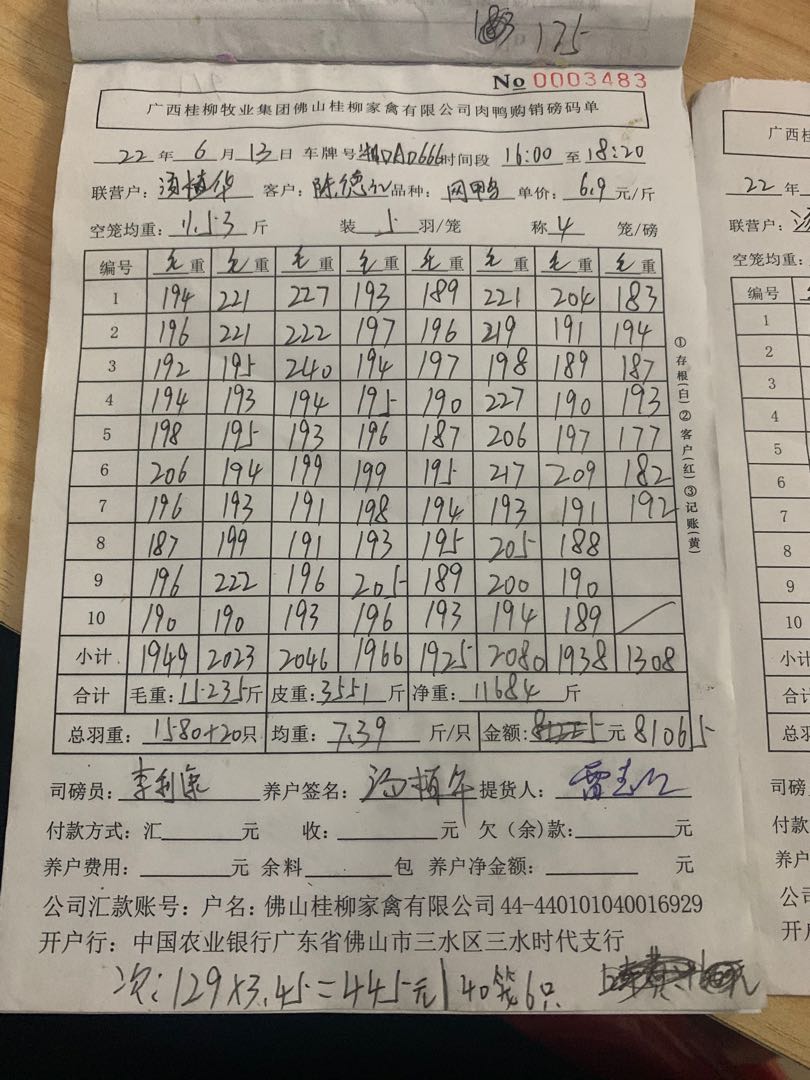 175
No 0003483
广西桂柳牧业集团佛山桂柳家禽有限公司肉鸭购销磅码单
22年6月13日 车牌号湘DAD666时间段 16:00至18:20
联营户:汤植华 客户:陈德 品种:网鸭 单价:6.9元/斤
空笼均重:11.53斤 装5羽/笼 称4笼/磅
编号 毛重 毛重 毛重 毛重 毛重 毛重 毛重 毛重
1 194 221 227 193 189 221 204 183
2 196 221 222 197 196 219 191 194
3 192 195 240 194 197 198 189 187
4 194 193 194 195 190 227 190 193
5 198 195 193 196 187 206 197 177
6 206 194 199 199 195 217 209 182
7 196 193 191 198 194 193 191 192
8 187 199 191 193 195 205 188
9 196 222 196 205 189 200 190
10 190 190 193 196 193 194 189
小计 1949 2023 2046 1966 1925 2080 1938 1308
合计 毛重:15235斤 皮重:3551斤 净重:11684斤
总羽重:1580+20只 均重:7.39斤/只 金额:元 81065
司磅员:李利康 养户签名:汤植华 提货人:雷
付款方式:汇 元 收: 元 欠(余)款: 元
养户费用: 元 余料 包 养户净金额: 元
公司汇款账号:户名:佛山桂柳家禽有限公司44-440101040016929
开户行:中国农业银行广东省佛山市三水区三水时代支行
次:129×3.45=445元 40笼6只
①存根(白)②客户(红)③记账(黄)
广西桂
22年
联营户:汤
空笼均重:
编号
1
2
3
4
5
6
7
8
9
10
小计
合计
总羽
司磅
付款
养户
公司
开户